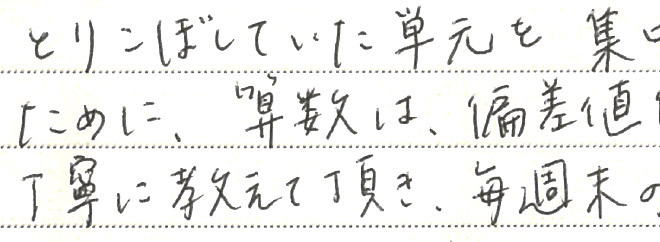 とりこぼしていた単元を集中
ために、算数は、偏差値
丁寧に教えて頂き、毎週末の